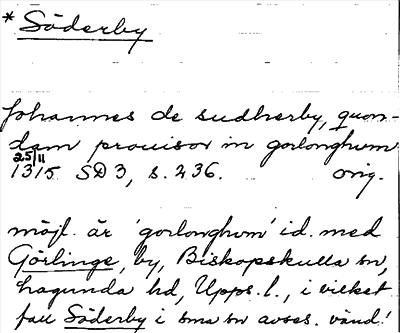 * Söderby
Johannes de sudherby, quon-
dam prouisor in gorlonghum
25/11
1315 SD 3, s. 236. orig.
möjl. är 'gorlonghum' id. med
Görlinge, by, Biskopskulla sn,
hagunda hd, Upps. l., i vilket
fall Söderby i sma sn avses. vänd!